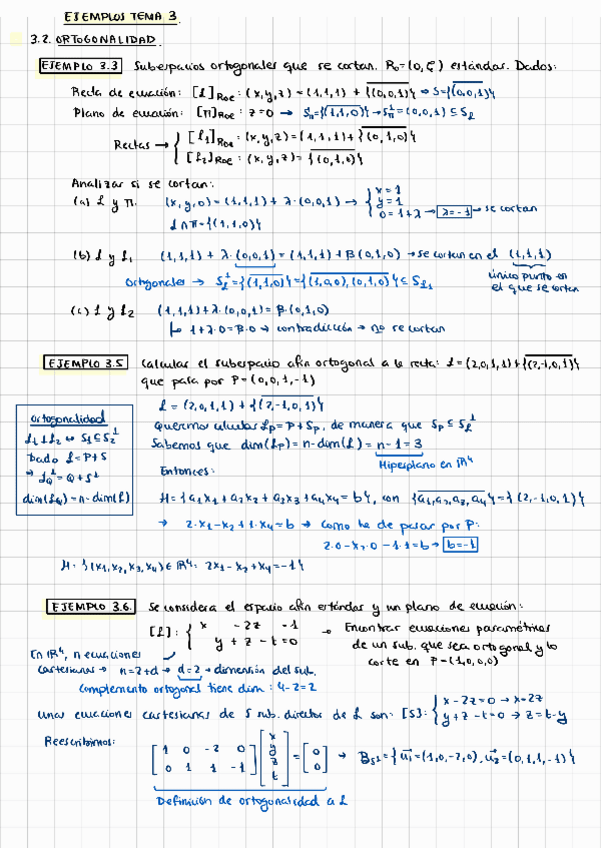 EJEMPLOS TEMA 3
3.2. ORTOGONALIDAD
EJEMPLO 3.3 Subespacios ortogonales que se cortan. R₀=(0,ξ) estándar. Dados:
Recta de ecuación: [L]Roe: (x,y,z)=(1,1,1) + {(0,0,1)} ⇒ S={(0,0,1)}
Plano de ecuación: [π]Roe: z=0 → Sπ={(1,1,0)} → Sπ^⊥=(0,0,1) ⊆ S_L
Rectas → { [L₁]Roe: (x,y,z)=(1,1,1)+{(0,1,0)}
[L₂]Roe: (x,y,z)= {(0,1,0)}
Analizar si se cortan:
(a) L y π. (x,y,0)=(1,1,1)+λ·(0,0,1) → { x=1
y=1
0=1+λ → λ=-1 → se cortan
L∩π={(1,1,0)}
(b) L y L₁ (1,1,1)+λ·(0,0,1)=(1,1,1)+β(0,1,0) → se cortan en el (1,1,1)
único punto en
el que se cortan
Ortogonales → S_L^⊥={(1,1,0)}={(1,0,0),(0,1,0)} ⊆ S_L₁
(c) L y L₂ (1,1,1)+λ·(0,0,1)=β·(0,1,0)
↳ 1+λ·0=β·0 → contradicción → no se cortan
EJEMPLO 3.5 Calcular el subespacio afín ortogonal a la recta: L=(2,0,1,1)+{(2,-1,0,1)}
que pasa por P=(0,0,1,-1)
L=(2,0,1,1)+{(2,-1,0,1)}
Queremos calcular L_P=P+S_P, de manera que S_P ⊆ S_L^⊥
Sabemos que dim(L_P)=n-dim(L)=n-1=3
Hiperplano en ℝ⁴
Ortogonalidad
L₁⊥L₂ ⇔ S₁⊆S₂^⊥
Dado L=P+S
⇒ L_Q^⊥=Q+S^⊥
dim(L_Q)=n-dim(L)
Entonces:
H={a₁x₁+a₂x₂+a₃x₃+a₄x₄=b}, con {a₁,a₂,a₃,a₄}={(2,-1,0,1)}
→ 2·x₁-x₂+1·x₄=b → como ha de pasar por P:
2·0-x₂·0-1·1=b → b=-1
H={(x₁,x₂,x₃,x₄)∈ℝ⁴: 2x₁-x₂+x₄=-1}
EJEMPLO 3.6. Se considera el espacio afín estándar y un plano de ecuación:
[L]: { x -2z -1
y+z-t=0
→ Encontrar ecuaciones paramétricas
de un sub. que sea ortogonal y lo
corte en P=(1,0,0,0)
En ℝ⁴, n ecuaciones
cartesianas → n=2+d → d=2 → dimensión del sub.
Complemento ortogonal tiene dim: 4-2=2
Unas ecuaciones cartesianas de S sub. director de L son: [S]: { x-2z=0 → x=2z
y+z-t=0 → z=t-y
Reescribimos:
[1 0 -2 0
0 1 1 -1] [x
y
z
t] = [0
0] → B_S^⊥={u₁=(1,0,-2,0), u₂=(0,1,1,-1)}
Definición de ortogonalidad a L